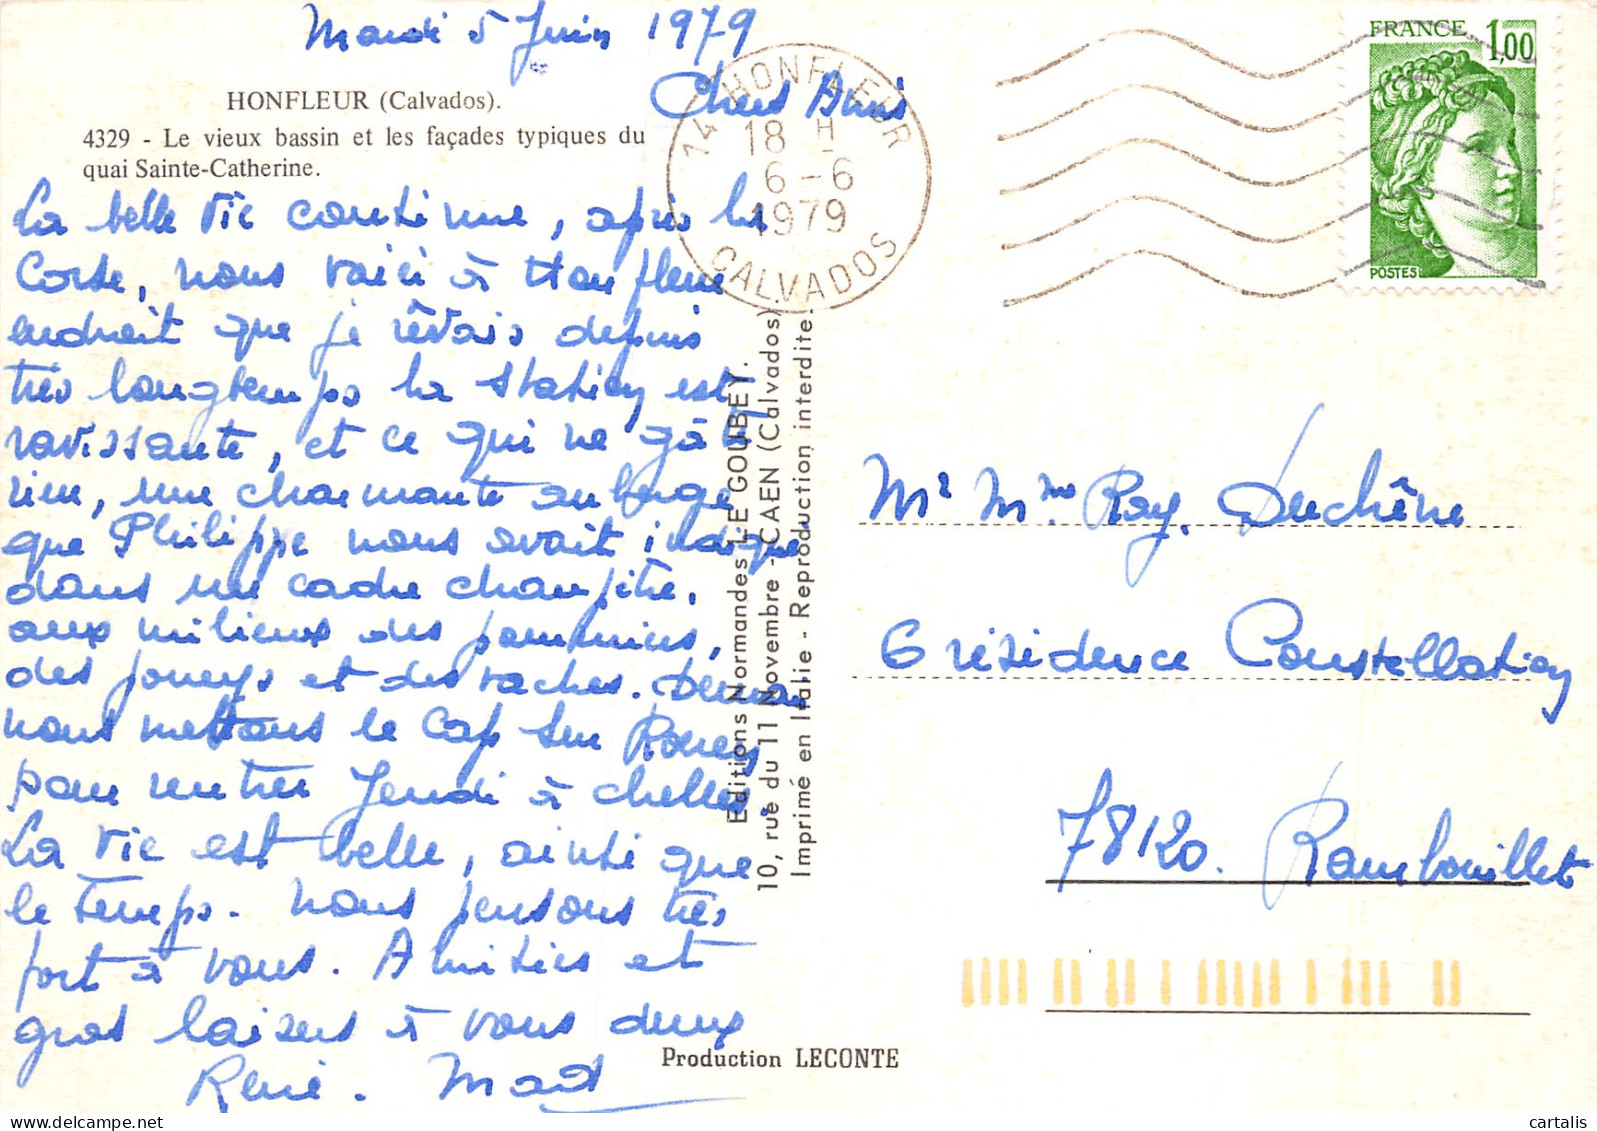 Mardi 5 Juin 1979
Chers Amis
HONFLEUR (Calvados).
4329 - Le vieux bassin et les façades typiques du
quai Sainte-Catherine.
La belle vie continue, après la
Corse, nous voici à Honfleur
endroit que je rêvais depuis
très longtemps la station est
ravissante, et ce qui ne gâte
rien, une charmante auberge
que Philippe nous avait indiqué
dans un cadre champêtre,
aux milieux des pommiers,
des poneys et des vaches. Demain
nous mettons le cap sur Rouen
pour rentrer Jeudi à chelles
La vie est belle, ainsi que
le temps. Nous pensons très
fort à vous. Amitiés et
gros baisers à vous deux
René.
14 HONFLEUR
18 H
6-6
1979
CALVADOS
FRANCE 1,00
POSTES
Editions Normandes LE GOUBEY.
10, rue du 11 Novembre - CAEN (Calvados)
Imprimé en Italie - Reproduction interdite.
Mr Mme Ray. Duchêne
6 résidence Constellation
78120. Rambouillet
Production LECONTE
cartalis